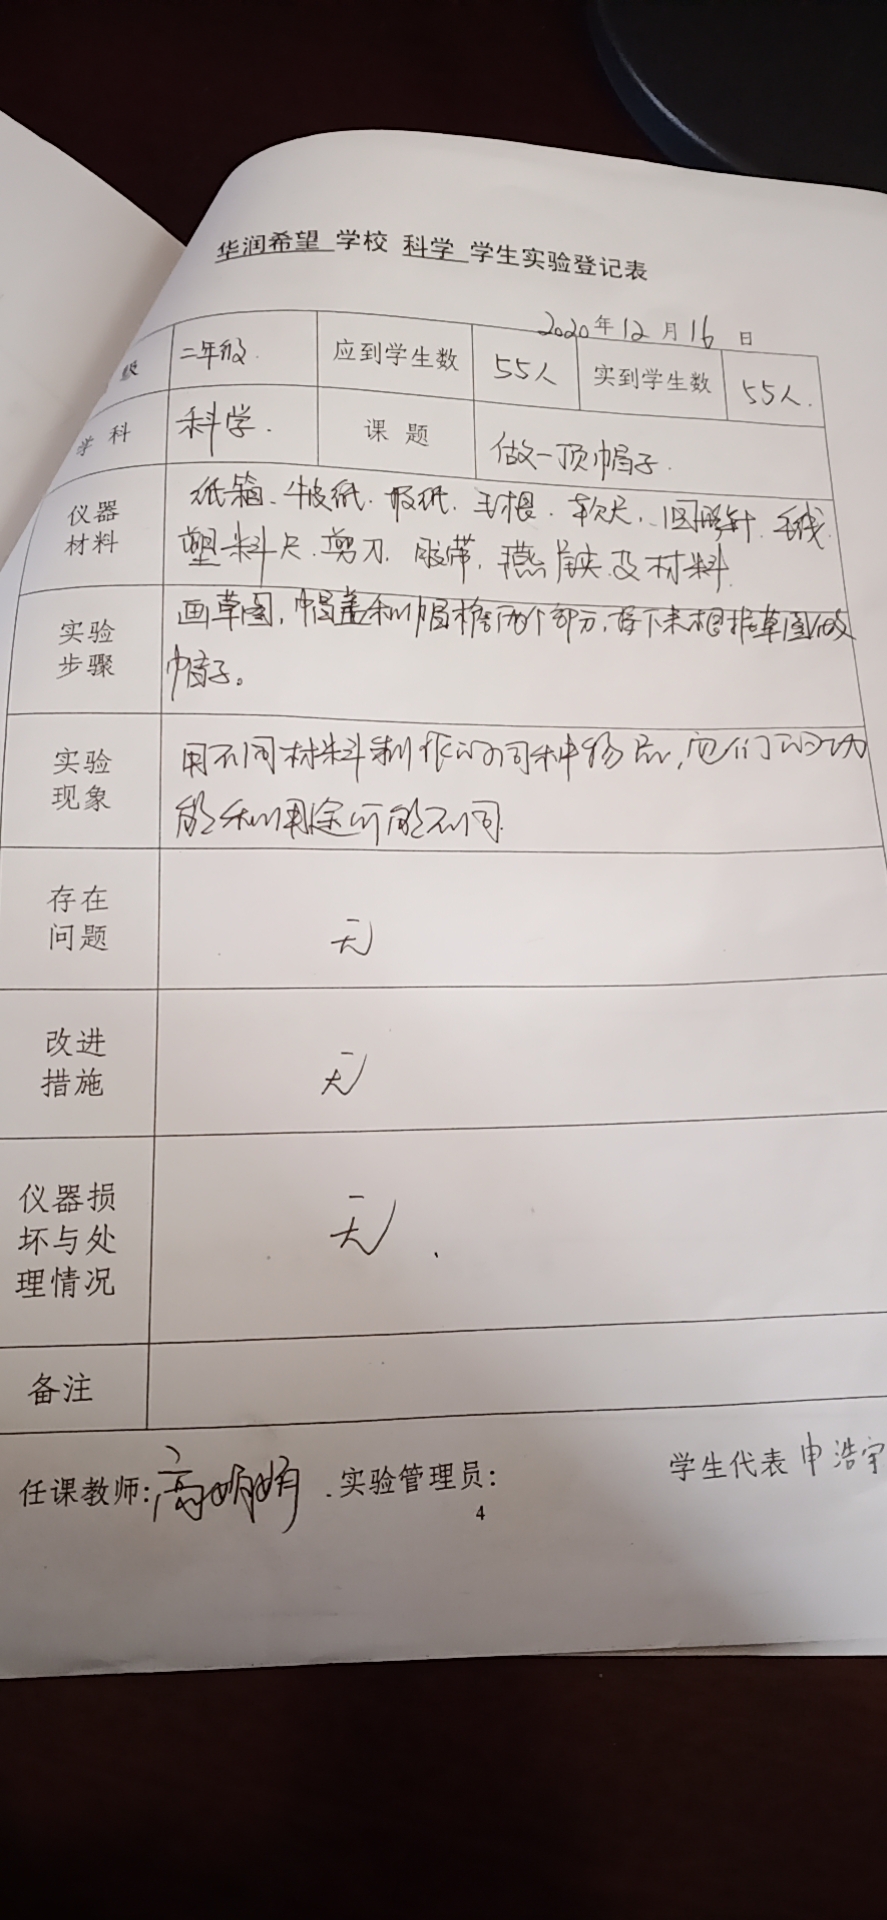 华润希望 学校 科学 学生实验登记表
2020年12月16日
级 二年级 应到学生数 55人 实到学生数 55人.
学科 科学. 课题 做一顶帽子.
仪器材料 纸箱、牛皮纸. 报纸. 毛根. 软尺. 回形针. 毛线.
塑料尺. 剪刀. 胶带. 燕尾夹及材料
实验步骤 画草图, 帽盖和帽檐两个部分, 接下来根据草图做
帽子。
实验现象 用不同材料制作的同种物品, 它们的功
能和用途可能不同.
存在问题 无
改进措施 无
仪器损坏与处理情况 无
备注
任课教师: 高娟娟 实验管理员: 学生代表 申浩宇
4